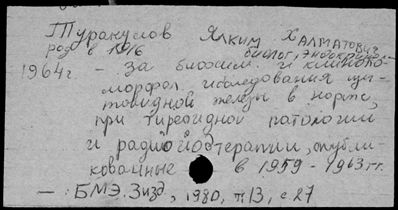 Туракулов Ялким Халматович
род в 1916 биолог, эндокринолог
1964г. - за биохим. и клинико-
морфол исследования щи-
товидной железы в норме,
при тиреоидной патологии
и радиойодтерапии, опубли-
кованные в 1959 - 1963 гг.
- : БМЭ. 3изд, 1980, т13, с 27